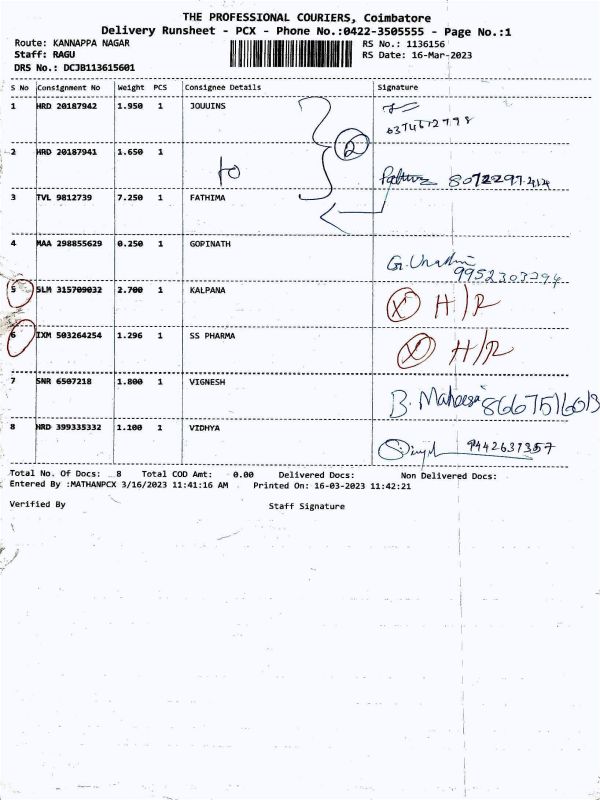 THE PROFESSIONAL COURIERS, Coimbatore
Delivery Runsheet - PCX - Phone No.:0422-3505555 - Page No.:1
Route: KANNAPPA NAGAR
Staff: RAGU
DRS No.: DCJB113615601
RS No.: 1136156
RS Date: 16-Mar-2023
S No Consignment No Weight PCS Consignee Details Signature
1 HRD 20187942 1.950 1 JOUUINS
2 HRD 20187941 1.650 1
to
2
3 TVL 9812739 7.250 1 FATHIMA
4 MAA 298855629 0.250 1 GOPINATH
9952303794
5 SLM 315709032 2.700 1 KALPANA X H/R
6 IXM 503264254 1.296 1 SS PHARMA X H/R
7 SNR 6507218 1.800 1 VIGNESH
8 HRD 399335332 1.100 1 VIDHYA
9442631357
Total No. Of Docs: 8 Total COD Amt: 0.00 Delivered Docs: Non Delivered Docs:
Entered By :MATHANPCX 3/16/2023 11:41:16 AM Printed On: 16-03-2023 11:42:21
Verified By Staff Signature